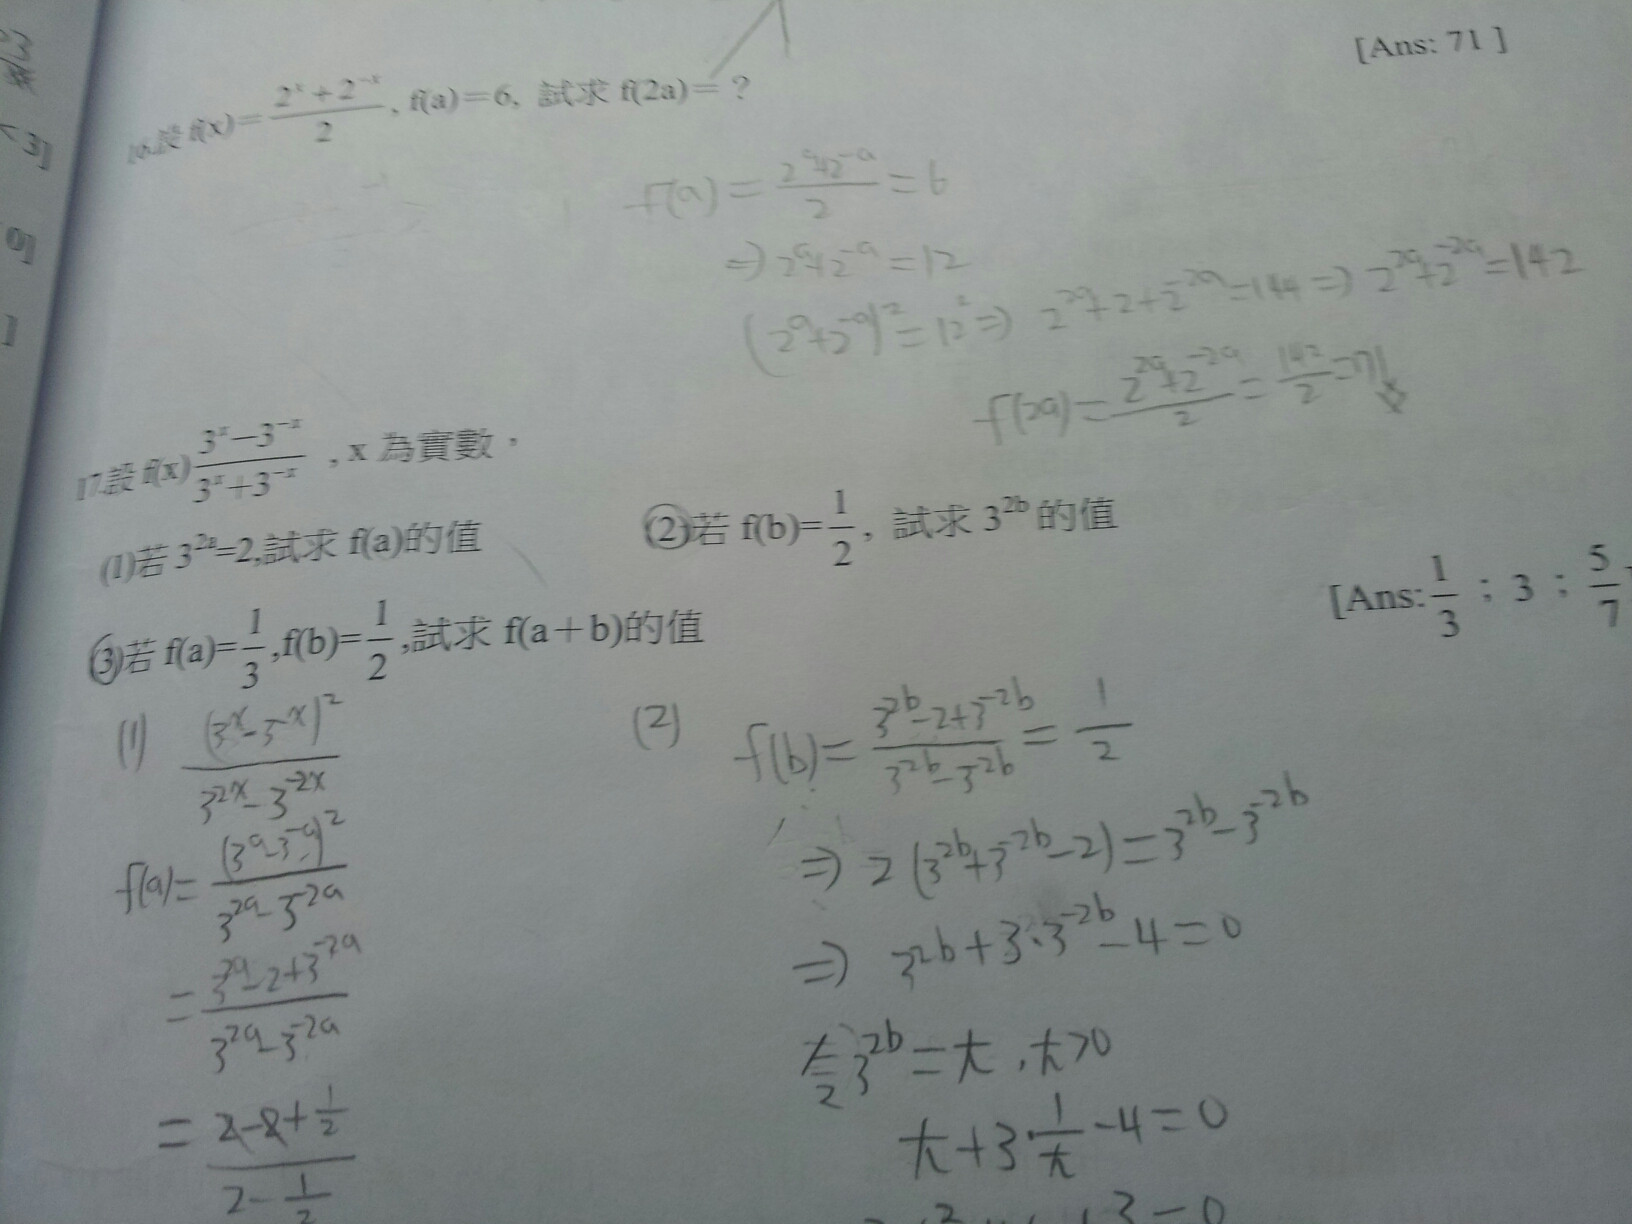 [Ans: 71 ]
16.設 f(x)=\frac{2^x+2^{-x}}{2}, f(a)=6, 試求 f(2a)=?
f(a)=\frac{2^a+2^{-a}}{2}=6
⇒2^a+2^{-a}=12
(2^a+2^{-a})^2=12^2⇒ 2^{2a}+2+2^{-2a}=144⇒ 2^{2a}+2^{-2a}=142
f(2a)=\frac{2^{2a}+2^{-2a}}{2}=\frac{142}{2}=71
17.設 f(x)\frac{3^x-3^{-x}}{3^x+3^{-x}},x 為實數,
(1)若 3^{2a}=2,試求 f(a)的值
(2)若 f(b)=\frac{1}{2}, 試求 3^{2b} 的值
(3)若 f(a)=\frac{1}{3},f(b)=\frac{1}{2},試求 f(a+b)的值
[Ans:\frac{1}{3};3;\frac{5}{7}
(1) \frac{(3^x-3^{-x})^2}{3^{2x}-3^{-2x}}
f(a)=\frac{(3^a-3^{-a})^2}{3^{2a}-3^{-2a}}
=\frac{3^{2a}-2+3^{-2a}}{3^{2a}-3^{-2a}}
=\frac{2-2+\frac{1}{2}}{2-\frac{1}{2}}
(2) f(b)=\frac{3^{2b}-2+3^{-2b}}{3^{2b}-3^{-2b}}=\frac{1}{2}
⇒ 2(3^{2b}+3^{-2b}-2)=3^{2b}-3^{-2b}
⇒ 3^{2b}+3·3^{-2b}-4=0
令3^{2b}=t,t>0
t+3·\frac{1}{t}-4=0